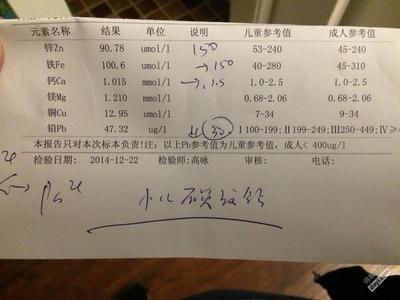 元素名称 结果 单位 说明 儿童参考值 成人参考值
锌Zn 90.78 umol/l 150 53-240 45-240
铁Fe 100.6 umol/l →150 40-280 45-310
钙Ca 1.015 mmol/l →1.5 1.0-2.5 1.0-2.5
镁Mg 1.210 mmol/l 0.68-2.06 0.68-2.06
铜Cu 12.95 umol/l 7-34 9-34
铅Pb 47.32 ug/l 30 Ⅰ100-199;Ⅱ199-249;Ⅲ250-449;Ⅳ≥4
本报告只对本次标本负责!注: 以上Pb参考值为儿童参考值, 成人< 400ug/l
检验日期: 2014-12-22 检验师:高咏 审核: 电话:
小儿